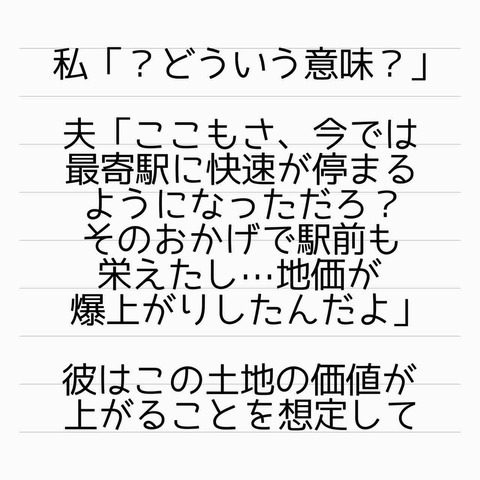 私「？どういう意味？」
夫「ここもさ、今では
最寄駅に快速が停まる
ようになっただろ？
そのおかげで駅前も
栄えたし…地価が
爆上がりしたんだよ」
彼はこの土地の価値が
上がることを想定して